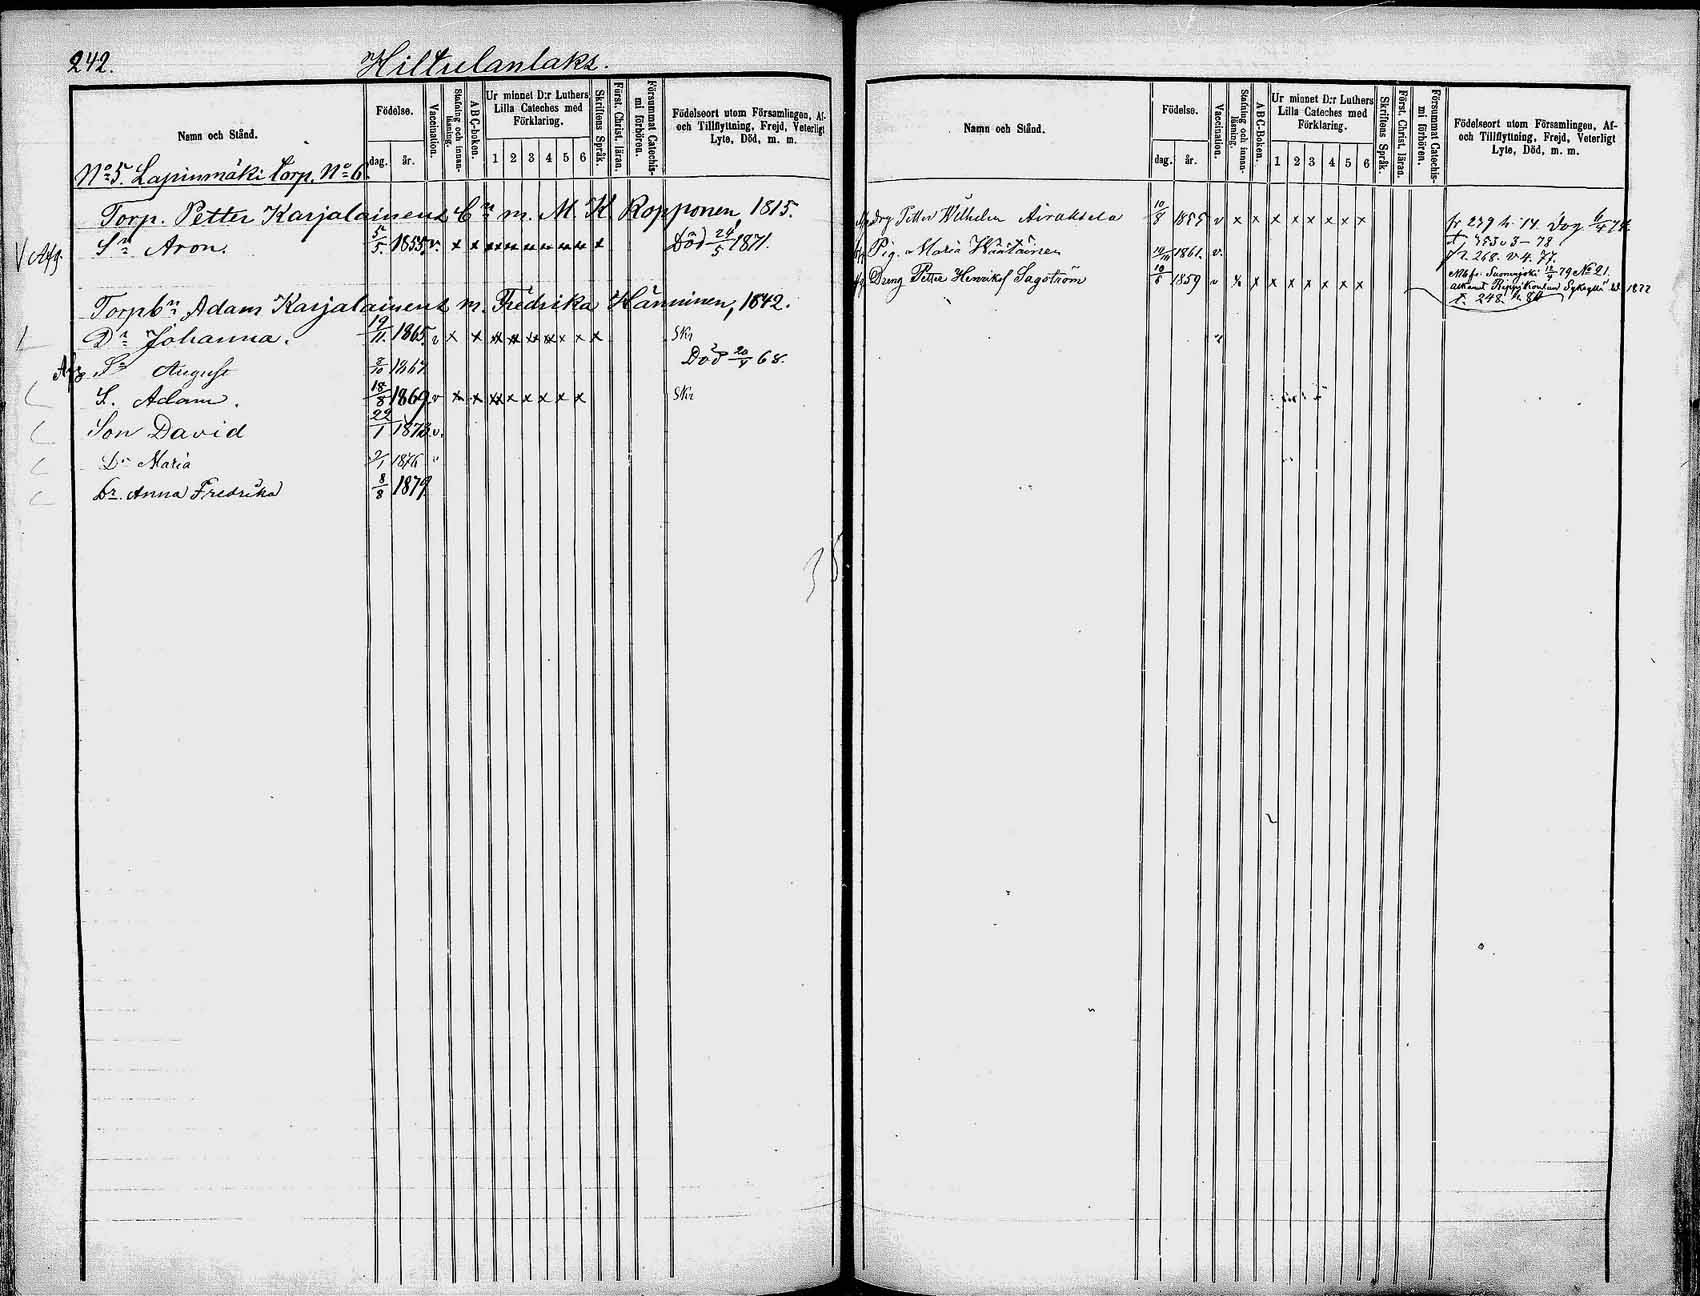 242.
Hiltulanlaks.
Namn och Stånd.
Födelse.
dag.
år.
Vaccination.
Stafning och innan-läsning.
ABC-boken.
Ur minnet D:r Luthers
Lilla Cateches med
Förklaring.
1 2 3 4 5 6
Skriftens Språk.
Först. Christ. läran.
Försummat Catechis-
mi förhören.
Födelseort utom Församlingen, Af-
och Tillflyttning, Frejd, Veterligt
Lyte, Död, m. m.
No 5. Lapinmäki torp. No 6
Torp. Petter Karjalainens Enk. m. M K Ropponen, 1815.
V Afg. Sn Aron. 5/5. 1855. v. x x x x x x x x x Död 24/5 1871.
Torpbn Adam Karjalainens m. Fredrika Hänninen, 1842.
Dr Johanna. 19/11. 1865. v x x x x x x x x x Skr
Afg Sn August 8/10 1867. Död 20/4 68.
S. Adam. 18/8 1869. v x x x x x x x x Skr
Son David 22/1 1873. v.
Dr Maria 2/1 1876 "
Dr. Anna Fredrika 8/8 1879
Namn och Stånd.
Födelse.
dag.
år.
Vaccination.
Stafning och innan-läsning.
ABC-Boken.
Ur minnet D:r Luthers
Lilla Cateches med
Förklaring.
1 2 3 4 5 6
Skriftens Språk.
Först. Christ. läran.
Försummat Catechis-
mi förhören.
Födelseort utom Församlingen, Af-
och Tillflyttning, Frejd, Veterligt
Lyte, Död, m. m.
Drg Petter Wilhelm Airaksela 10/8 1855 v x x x x x x x x
Pig. Maria 1861. v. fr. 268. v 4. 77.
Dreng Petter Henriksf Sagström 10/6 1859 v x x x x x x x x
79 No 21.
1877
t. 248.